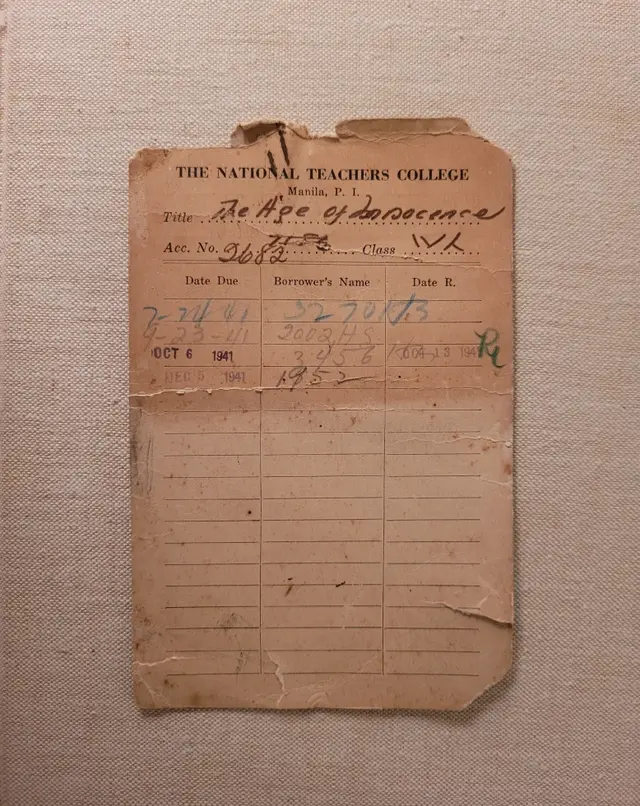 THE NATIONAL TEACHERS COLLEGE
Manila, P. I.
Title The Age of Innocence
Acc. No. 2682 Class
Date Due Borrower's Name Date R.
7-24-41
9-23-41 2002HS
OCT 6 1941 3456 OCT 13 194
DEC 5 1941 1952